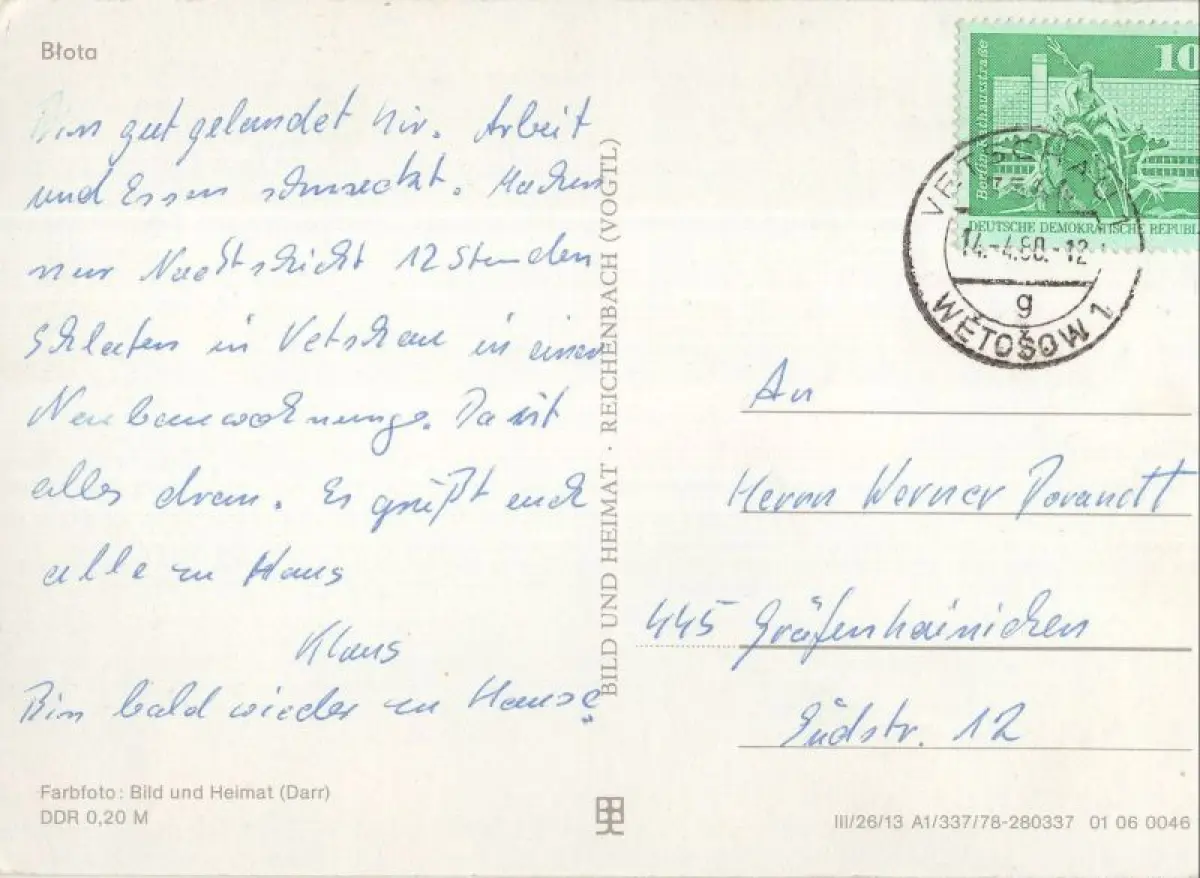 Błota
Bin gut gelandet hir. Arbeit
und Essen schmeckt. Machen
nur Nachtschicht 12 Stunden
Schlafen in Vetschau in einer
Neubauwohnung. Da ist
alles dran. Es grüßt euch
alle zu Haus
Klaus
Bin bald wieder zu Hause
Farbfoto: Bild und Heimat (Darr)
DDR 0,20 M
BILD UND HEIMAT · REICHENBACH (VOGTL)
10
Berlin Rathausstraße
DEUTSCHE DEMOKRATISCHE REPUBL
VETSCHAU 1
14.-4.80.-12
g
WĚTOŠOW 1
An
Herrn Werner
445 Gräfenhainichen
Südstr. 12
III/26/13 A1/337/78-280337 01 06 0046